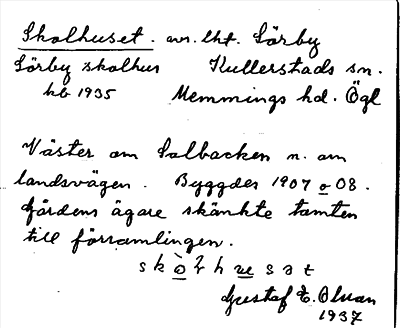 Skolhuset. avs. lht. Sörby
Sörby skolhus Kullerstads sn.
hb 1935 Memmings hd. Ögl
Väster om Solbacken n. om
landsvägen. Byggdes 1907 o 08.
Gårdens ägare skänkte tomten
till församlingen.
Gustaf E. Olsson
1937